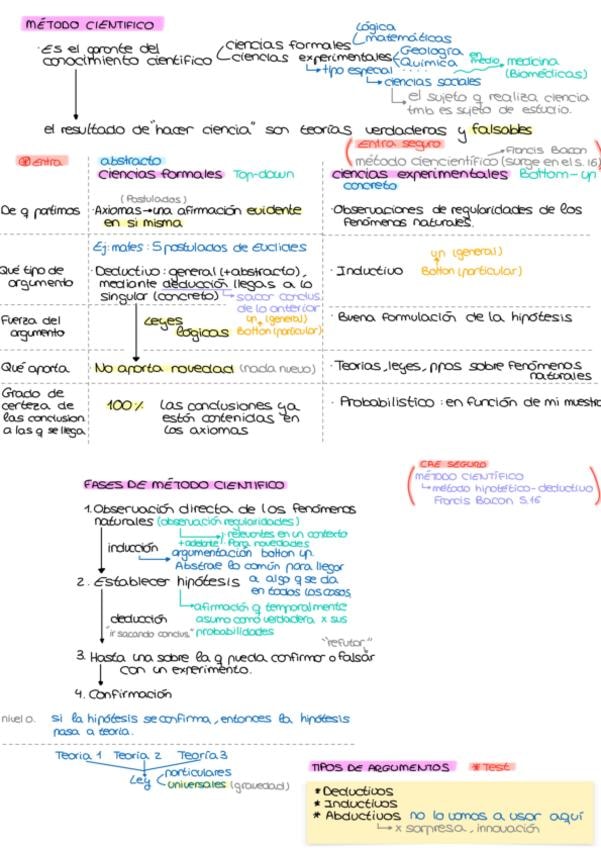 MÉTODO CIENTIFICO
· Es el gronte del conocimiento científico
ciencias formales
Lógica
matemáticas
ciencias experimentales
Geología
Química
tipo especial ....
en medio
medicina (Biomédicas)
ciencias sociales
el sujeto q realiza ciencia
tmb es sujeto de estudio.
el resultado de "hacer ciencia" son teorías verdaderas y falsables
Entra seguro
Francis Bacon
método ciencientífico (surge en el S. 16)
Entra
abstracto
ciencias formales Top-down
ciencias experimentales Bottom-up
concreto
De q partimos
(Postulados)
· Axiomas → una afirmación evidente
en si misma
· Observaciones de regularidades de los
fenómenos naturales.
Ej: mates: 5 postulados de Euclides
Qué tipo de
argumento
· Deductivo: general (+abstracto),
mediante deducción llegas a lo
singular (concreto)
sacar conclus.
de lo anterior
· Inductivo
up (general)
Botton (particular)
Fuerza del
argumento
Leyes
lógicas
up (general)
Botton (particular)
· Buena formulación de la hipótesis
Qué aporta
No aporta novedad (nada nuevo)
· Teorías, leyes, ppos sobre fenómenos
naturales
Grado de
certeza de
las conclusion
a las q se llega
100% Las conclusiones ya
están contenidas en
los axiomas
· Probabilístico: en función de mi muestra
FASES DE MÉTODO CIENTIFICO
CAE SEGURO
MÉTODO CIENTÍFICO
método hipotético-deductivo
Francis Bacon S.16
1. Observación directa de los fenómenos
naturales (observación regularidades)
relevantes en un contexto
+adelante: para novedades
inducción
argumentación botton up.
Abstrae lo común para llegar
a algo q se da
en todos los casos
2. Establecer hipótesis
afirmación q temporalmente
asumo como verdadera x sus
probabilidades
deducción
"ir sacando conclus."
"refutar"
3. Hasta una sobre la q pueda confirmar o falsar
con un experimento.
4. Confirmación
nivel 0. si la hipótesis se confirma, entonces la hipótesis
pasa a teoría.
Teoria 1 Teoría 2 Teoría 3
Ley
particulares
universales (gravedad)
TIPOS DE ARGUMENTOS * Test
* Deductivos
* Inductivos
* Abductivos no lo vamos a usar aquí
x sorpresa, innovación